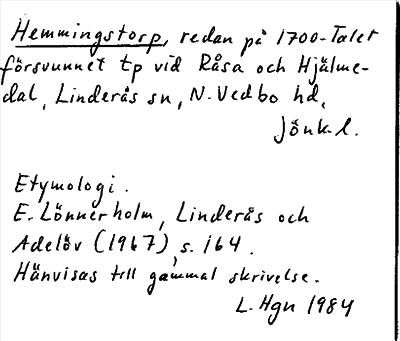 Hemmingstorp, redan på 1700-Talet
försvunnet tp vid Råsa och Hjälme-
dal, Linderås sn, N. Vedbo hd,
Jönk.l.
Etymologi.
E. Lönnerholm, Linderås och
Adelöv (1967), s. 164.
Hänvisas till gammal skrivelse.
L. Hgn 1984